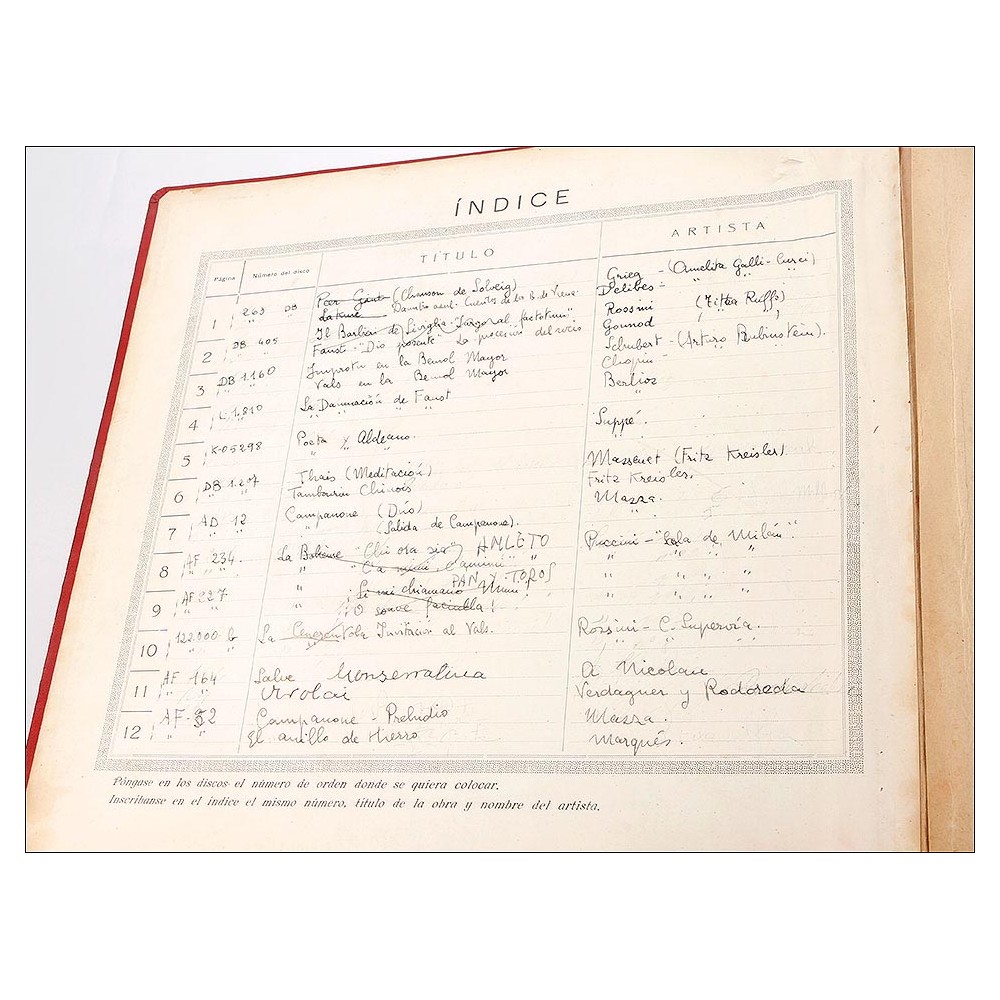 ÍNDICE
Página Número del disco TÍTULO ARTISTA
1 263 DB Peer Gynt (Chanson de Solveig) Grieg - (Amelita Galli-Curci)
" " Lakmé Cuentos de los B. de Viena Delibes - " "
2 DB 405 Il Barbieri de Siviglia - "Largo al factotum" Rossini (Titta Ruffo)
" " Faust - "Dio possente" La del rocio Gounod
3 DB 1.160 Improptu en la Bemol Mayor Schubert - (Arturo Rubinstein).
" " Vals en la Bemol Mayor Chopin - " "
4 L-1.810 La Damnación de Faust Berlioz
" " " " "
5 K-05298 Poeta y Aldeano. Suppé.
6 DB 1.207 Thais (Meditación) Massenet (Fritz Kreisler)
" " Tambourin Chinois Fritz Kreisler.
7 AD 12 Campanone (Dúo) Mazza.
" " " (Salida de Campanone). "
8 AF 234. La Boheme "Chi ora sia" AMLETO Puccini - "Scala de Milán".
" " " " " " "
9 AF 227 " Si mi chiamano Mimi! PAN Y TOROS " " " "
" " " O soave faciulla! " " " "
10 122.000 b La Cenerentola Invitacion al Vals. Rossini - C. Supervía.
" " " "
11 AF 164 Salve Monserratina A Nicolau
" " Virolai Verdaguer y Rodoreda
12 AF-52 Campanone - Preludio Mazza.
" " El anillo de Hierro Marqués.
Póngase en los discos el número de orden donde se quiera colocar.
Inscríbanse en el índice el mismo número, título de la obra y nombre del artista.